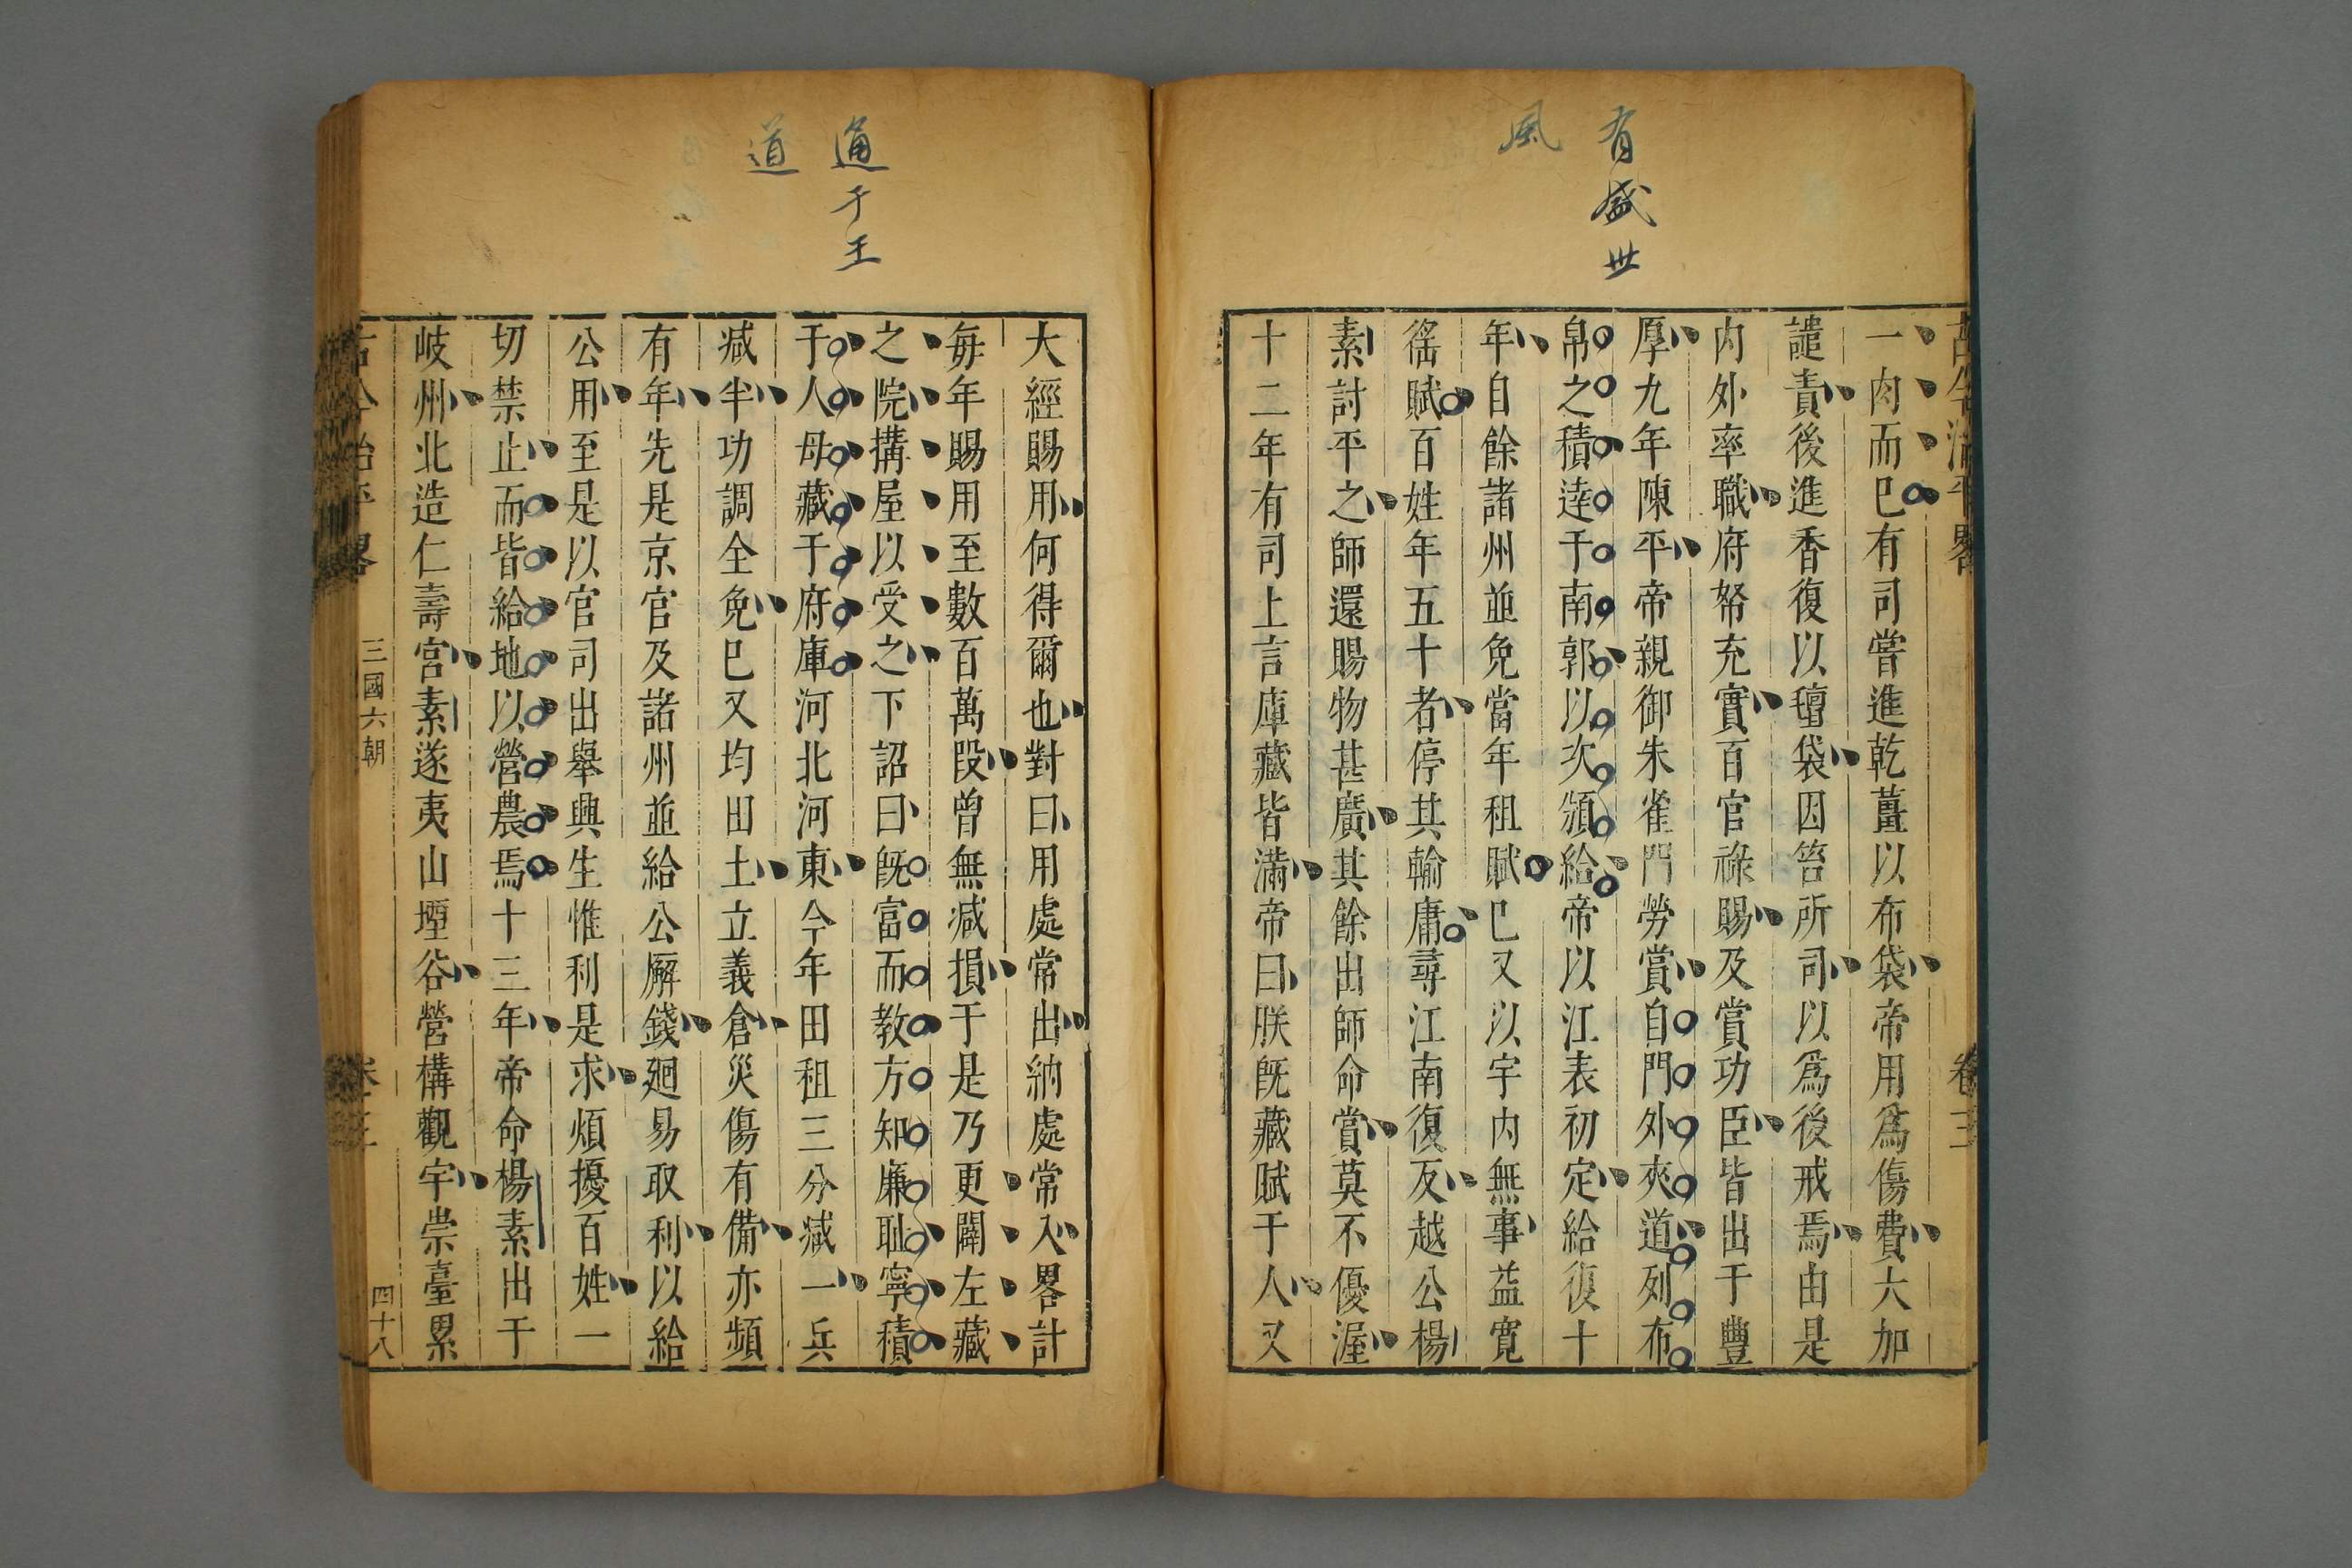 有盛世
風
一肉而已有司嘗進乾薑以布袋帝用爲傷費大加
譴責後進香復以氊袋因笞所司以爲後戒焉由是
内外率職府帑充實百官祿賜及賞功臣皆出于豐
厚九年陳平帝親御朱雀門勞賞自門外夾道列布
帛之積逹于南郭以次頒給帝以江表初定給復十
年自餘諸州並免當年租賦巳又以宇内無事益寛
徭賦百姓年五十者停其輸庸尋江南復反越公楊
素討平之師還賜物甚廣其餘出師命賞莫不優渥
十二年有司上言庫藏皆滿帝曰朕旣藏賦于人又
通于王
道
大經賜用何得爾也對曰用處常出納處常入畧計
每年賜用至數百萬段曾無减損于是乃更闢左藏
之院搆屋以受之下詔曰旣富而教方知廉耻寧積
于人母藏于府庫河北河東今年田租三分减一兵
减半功調全免巳又均田土立義倉災傷有備亦頻
有年先是京官及諸州並給公廨錢廻易取利以給
公用至是以官司出舉興生惟利是求煩擾百姓一
切禁止而皆給地以營農焉十三年帝命楊素出于
岐州北造仁壽宫素遂夷山堙谷營構觀宇崇臺累
古今治平畧
三國六朝
卷三
四十八